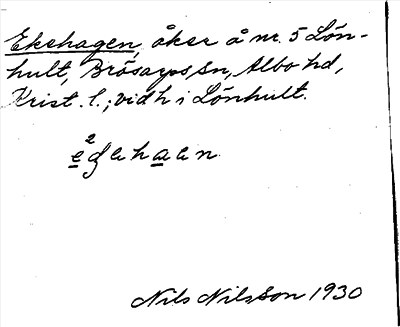 Ekehagen, åker å nr. 5 Lön-
hult, Brösarps sn, Albo hd,
Krist. l.; vid h i Lönhult.
Nils Nilsson 1930